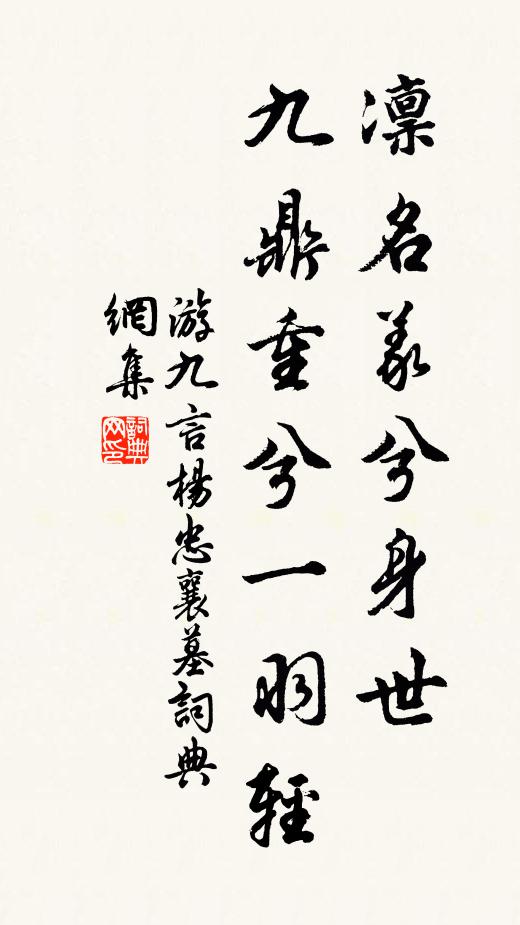 凜名義兮身世
九鼎重兮一羽輕
游九言楊忠襄墓詞典
網集
詞典
网印